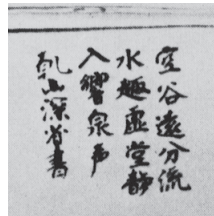 空谷遠分流
水趣虚堂静
入響泉声
乾山深省書